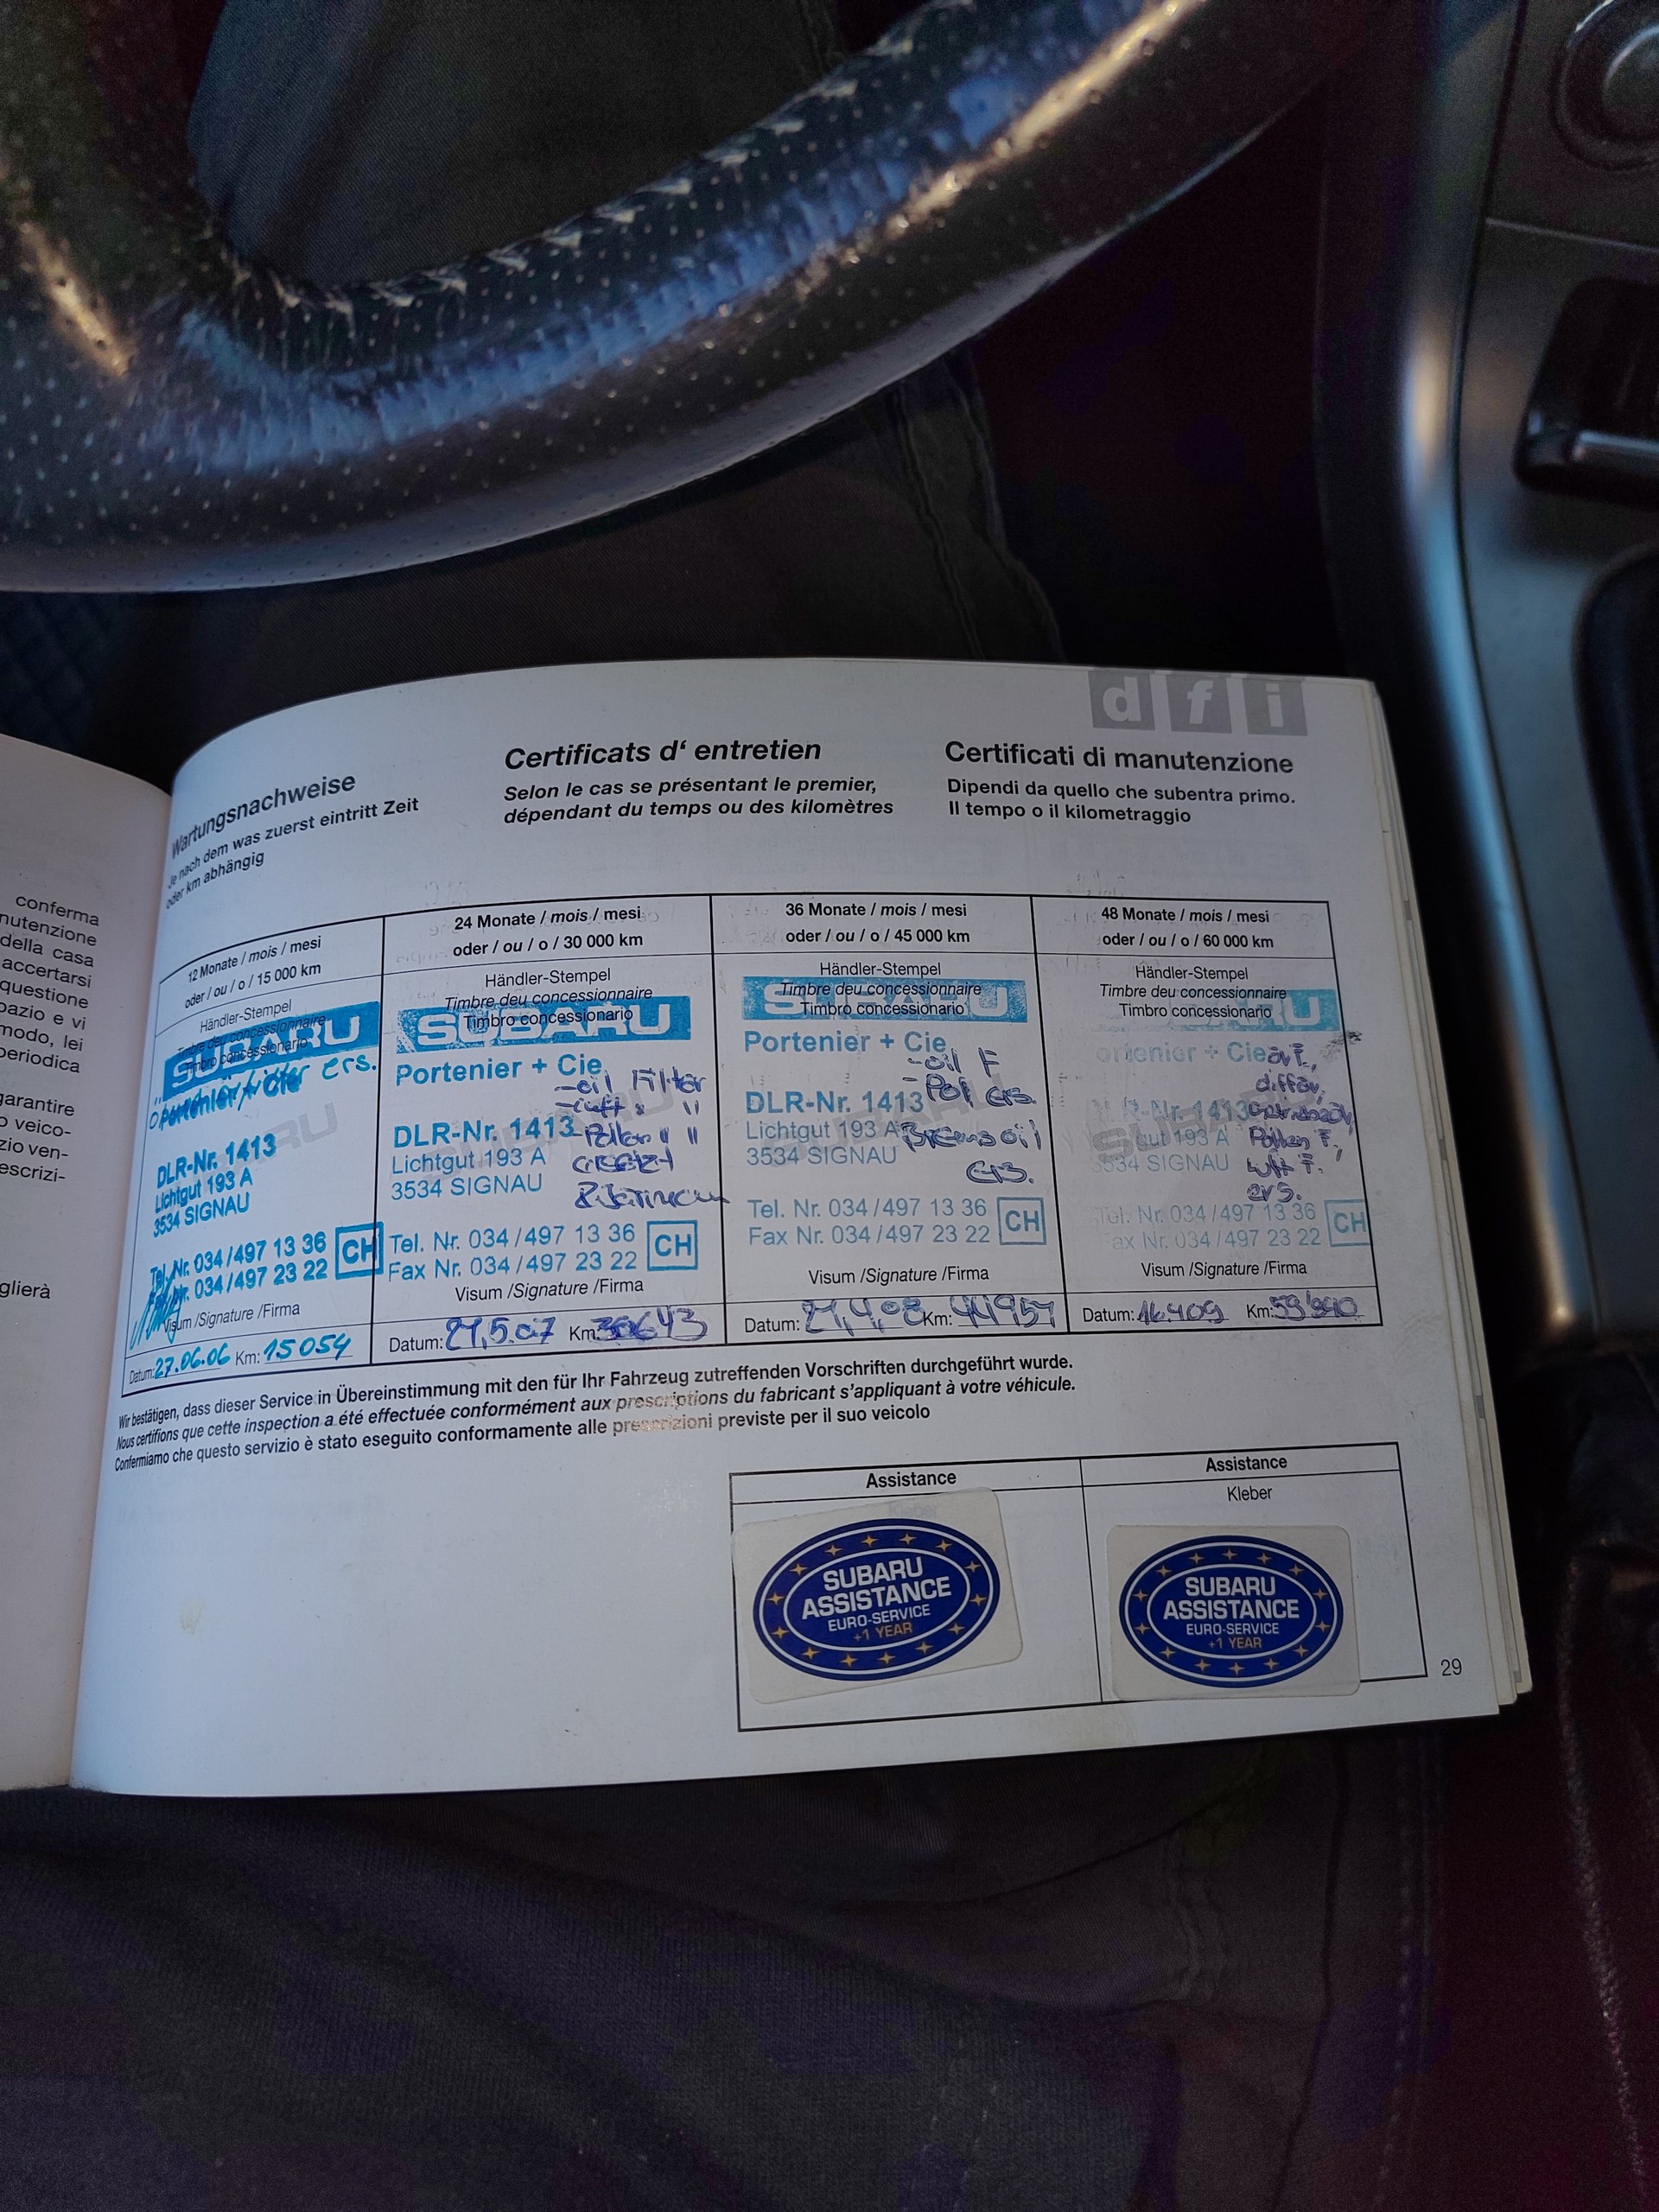 conferma
nutenzione
della casa
accertarsi
questione
pazio e vi
modo, lei
periodica
garantire
o veico-
zio ven-
escrizi-
glierà
d f i
Wartungsnachweise
Je nach dem was zuerst eintritt Zeit
oder km abhängig
Certificats d‘ entretien
Selon le cas se présentant le premier,
dépendant du temps ou des kilomètres
Certificati di manutenzione
Dipendi da quello che subentra primo.
Il tempo o il kilometraggio
12 Monate / mois / mesi
oder / ou / o / 15 000 km
Händler-Stempel
Timbre deu concessionnaire
Timbro concessionario
SUBARU
Portenier + Cie
ers.
DLR-Nr. 1413
Lichtgut 193 A
3534 SIGNAU
Tel. Nr. 034/497 13 36
Fax Nr. 034/497 23 22
CH
Visum /Signature /Firma
Datum: 27.06.06 Km: 15054
24 Monate / mois / mesi
oder / ou / o / 30 000 km
Händler-Stempel
Timbre deu concessionnaire
Timbro concessionario
SUBARU
Portenier + Cie
-oil Filter
-Luft "
DLR-Nr. 1413
-Pollen " "
Lichtgut 193 A
ersetzt
3534 SIGNAU
Tel. Nr. 034/497 13 36
Fax Nr. 034/497 23 22
CH
Visum /Signature /Firma
Datum: 21,5.07 Km: 30643
36 Monate / mois / mesi
oder / ou / o / 45 000 km
Händler-Stempel
Timbre deu concessionnaire
Timbro concessionario
SUBARU
Portenier + Cie
-oil F
-Pol ers.
DLR-Nr. 1413
Lichtgut 193 A
Brems oil
3534 SIGNAU
ers.
Tel. Nr. 034/497 13 36
Fax Nr. 034/497 23 22
CH
Visum /Signature /Firma
Datum: 21,4,08 Km: 44957
48 Monate / mois / mesi
oder / ou / o / 60 000 km
Händler-Stempel
Timbre deu concessionnaire
Timbro concessionario
SUBARU
ortenier + Cie
diff
R-Nr. 1413
gut 193 A
Pollen F.,
3534 SIGNAU
Luft F.
ers.
Tel. Nr. 034/497 13 36
Fax Nr. 034/497 23 22
CH
Visum /Signature /Firma
Datum: 16.409 Km: 59'890
Wir bestätigen, dass dieser Service in Übereinstimmung mit den für Ihr Fahrzeug zutreffenden Vorschriften durchgeführt wurde.
Nous certifions que cette inspection a été effectuée conformément aux prescriptions du fabricant s’appliquant à votre véhicule.
Confermiamo che questo servizio è stato eseguito conformamente alle prescrizioni previste per il suo veicolo
Assistance
Kleber
SUBARU
ASSISTANCE
EURO-SERVICE
+1 YEAR
Assistance
Kleber
SUBARU
ASSISTANCE
EURO-SERVICE
+1 YEAR
29